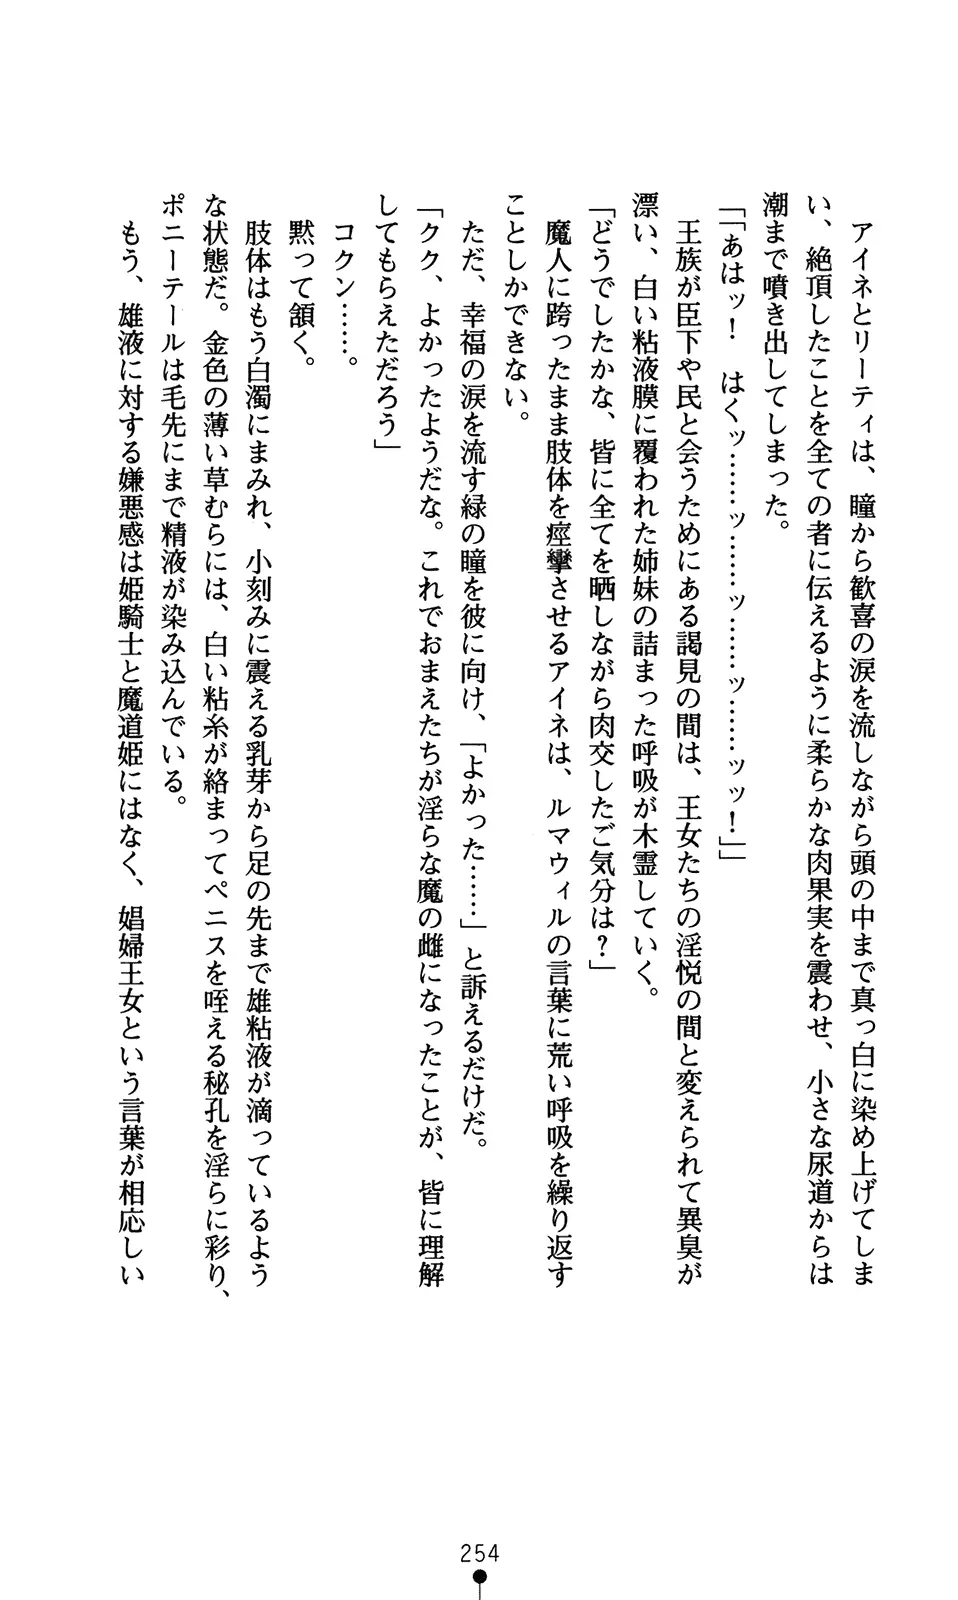 アイネとリーティは、瞳から歓喜の涙を流しながら頭の中まで真っ白に染め上げてしま
い、絶頂したことを全ての者に伝えるように柔らかな肉果実を震わせ、小さな尿道からは
潮まで噴き出してしまった。
「「あはッ！　はくッ……ッ……ッ……ッ……ッッ！」」
王族が臣下や民と会うためにある謁見の間は、王女たちの淫悦の間と変えられて異臭が
漂い、白い粘液膜に覆われた姉妹の詰まった呼吸が木霊していく。
「どうでしたかな、皆に全てを晒しながら肉交したご気分は？」
魔人に跨ったまま肢体を痙攣させるアイネは、ルマウィルの言葉に荒い呼吸を繰り返す
ことしかできない。
ただ、幸福の涙を流す緑の瞳を彼に向け、「よかった……」と訴えるだけだ。
「クク、よかったようだな。これでおまえたちが淫らな魔の雌になったことが、皆に理解
してもらえただろう」
コクン……。
黙って頷く。
肢体はもう白濁にまみれ、小刻みに震える乳芽から足の先まで雄粘液が滴っているよう
な状態だ。金色の薄い草むらには、白い粘糸が絡まってペニスを咥える秘孔を淫らに彩り、
ポニーテールは毛先にまで精液が染み込んでいる。
もう、雄液に対する嫌悪感は姫騎士と魔道姫にはなく、娼婦王女という言葉が相応しい
254